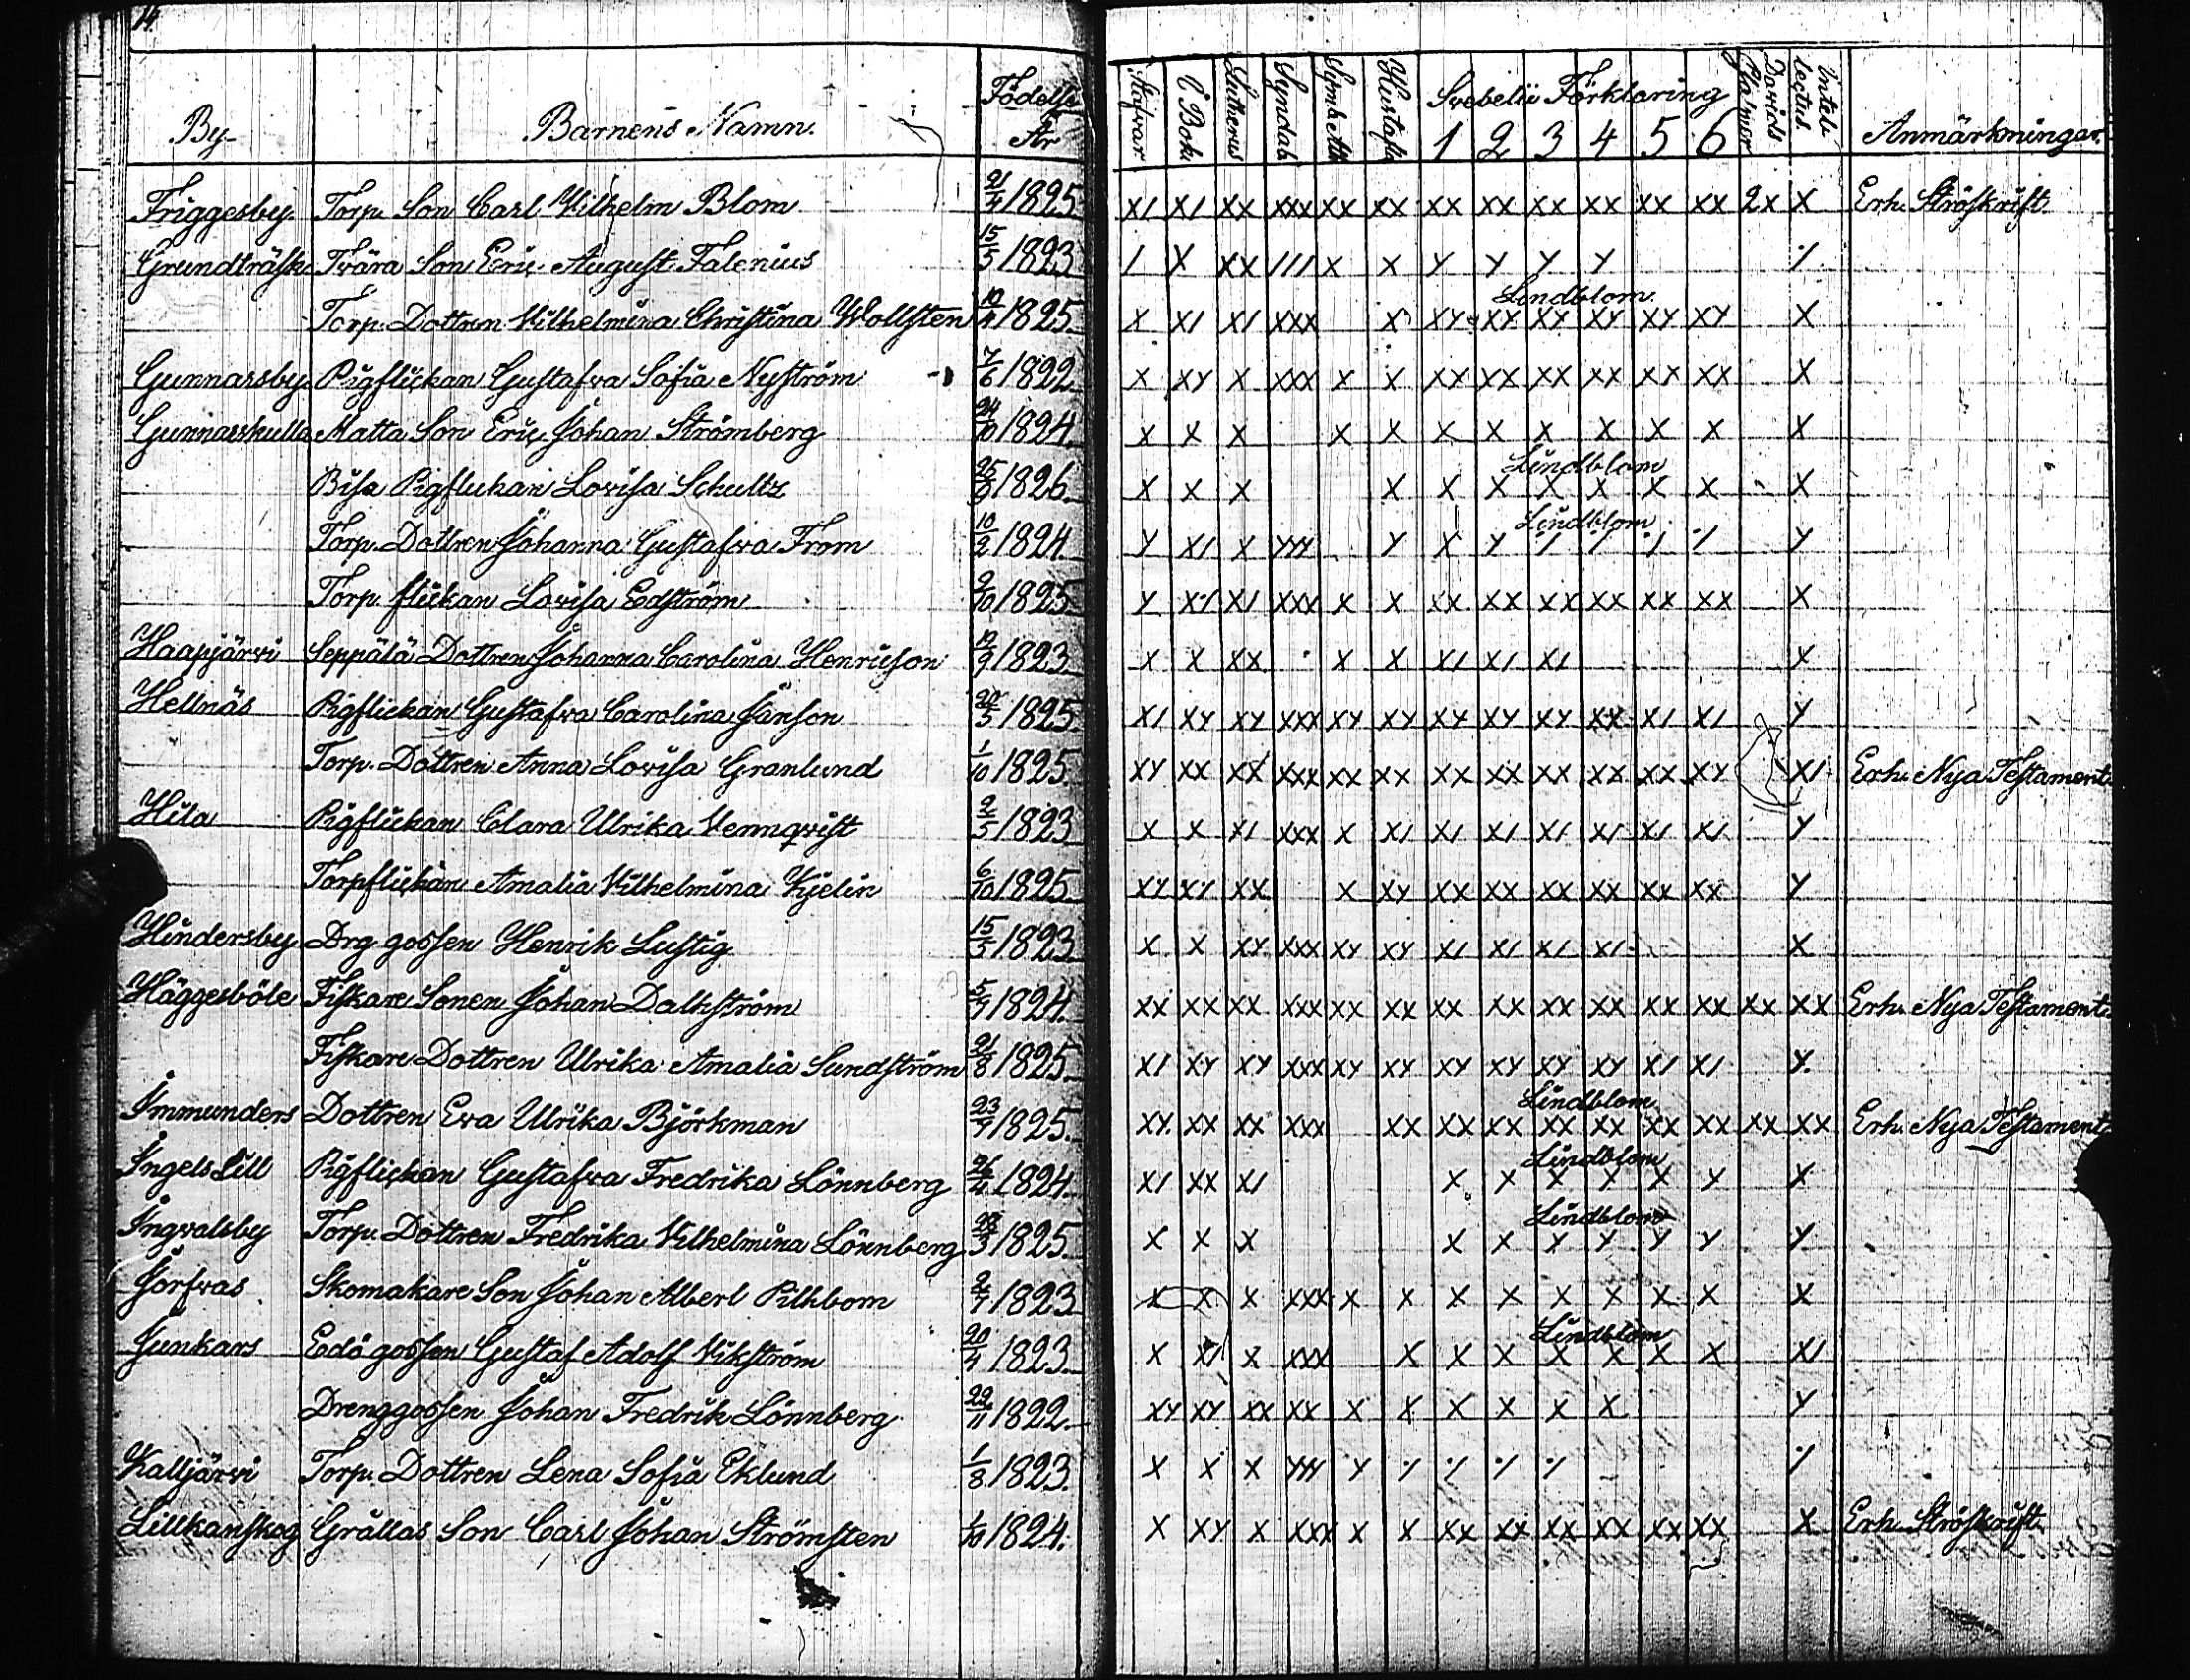 14.
By Barnens Namn. Födelse År Stafvar C Bok Lutherus Syndab Symb Ath Hustafl Svebelii Förklaring 1 2 3 4 5 6 Davids Psalmer Intellectus Anmärkningar.
Friggesby Torp. Son Carl Vilhelm Blom 21/4 1825 XI XI XX XXX XX XX XX XX XX XX XX XX 2X X Erh. Ströskrift.
Grundträsk Tvära Son Eric August Falenius 15/5 1823 I X XX III X X Y Y Y Y ٪
Lindblom
Torp. Dottren Vilhelmina Christina Wollsten 10/4 1825 X XI XI XXX X XY XY XY XY XY XY X
Gunnarsby Pigflickan Gustafva Sofia Nyström 7/6 1822 X XY X XXX X X XX XX XX XX XX XX X
Gunnarskulla Matta Son Eric Johan Strömberg 24/10 1824 X X X X X X X X X X X X
Lindblom
Bisa Pigflickan Lovisa Schultz 25/8 1826 X X X X X X X X X X X
Lindblom
Torp. Dottren Johanna Gustafva From 10/2 1824 Y XI X YYY Y X Y ٪ ٪ ٪ ٪ Y
Torp. flickan Lovisa Edström 2/10 1825 Y XI XI XXX X X XX XX XX XX XX XX X
Haapjärvi Seppälä Dottren Johanna Carolina Henricson 19/9 1823 X X XX X X XI XI XI X
Hellnäs Pigflickan Gustafva Carolina Janson 1825 XI XY XY XXX XY XY XY XY XY XX XI XI Y
Torp. Dottren Anna Lovisa Granlund 1/10 1825 XY XX XX XXX XX XX XX XX XX XX XX XY XI Erh. Nya Testament.
Hila Pigflickan Clara Ulrika Vennqvist 2/5 1823 X X XI XXX X XI XI XI XI XI XI XI Y
Torpflickan Amalia Vilhelmina Kjelin 6/10 1825 XX XY XX X XY XX XX XX XX XX XX Y
Hindersby Drg gossen Henrik Lustig 15/5 1823 X X XY XXX XY XY XI XI XI XI X
Häggesböle Fiskare Sonen Johan Dalkström 5/9 1824 XX XX XX XXX XX XX XX XX XX XX XX XX XX XX Erh. Nya Testament.
Fiskare Dottren Ulrika Amalia Sundström 21/8 1825 XI XY XY XXX XY XY XY XY XY XY XI XI Y
Lindblom
Immunders Dottren Eva Ulrika Björkman 23/9 1825 XY XX XX XXX XX XX XX XX XX XX XX XX XX Erh. Nya Testament
Lindblom
Ingels Lill Pigflickan Gustafva Fredrika Lönnberg 26/4 1824 XI XX XI X X X X X Y X
Lindblom
Ingvalsby Torp. Dottren Fredrika Vilhelmina Lönnberg 1825 X X X X X X Y Y Y Y
Jorfvas Skomakare Son Johan Albert Pilkbom 2/7 1823 X X X XXX X X X X X X X X X
Lindblom
Junkars Edö gossen Gustaf Adolf Vikström 20/4 1823 X XI X XXX X X X X X X X XI
Drenggossen Johan Fredrik Lönnberg 22/11 1822 XY XY XX XX X X X X X X Y
Kalljärvi Torp. Dottren Lena Sofia Eklund 1/8 1823 X X X YYY Y ٪ ٪ ٪ ٪ ٪
Lillkanskog Grällas Son Carl Johan Strömsten 1/10 1824 X XY X XXX X X XX XX XX XX XX XX X Erh. Ströskrift.